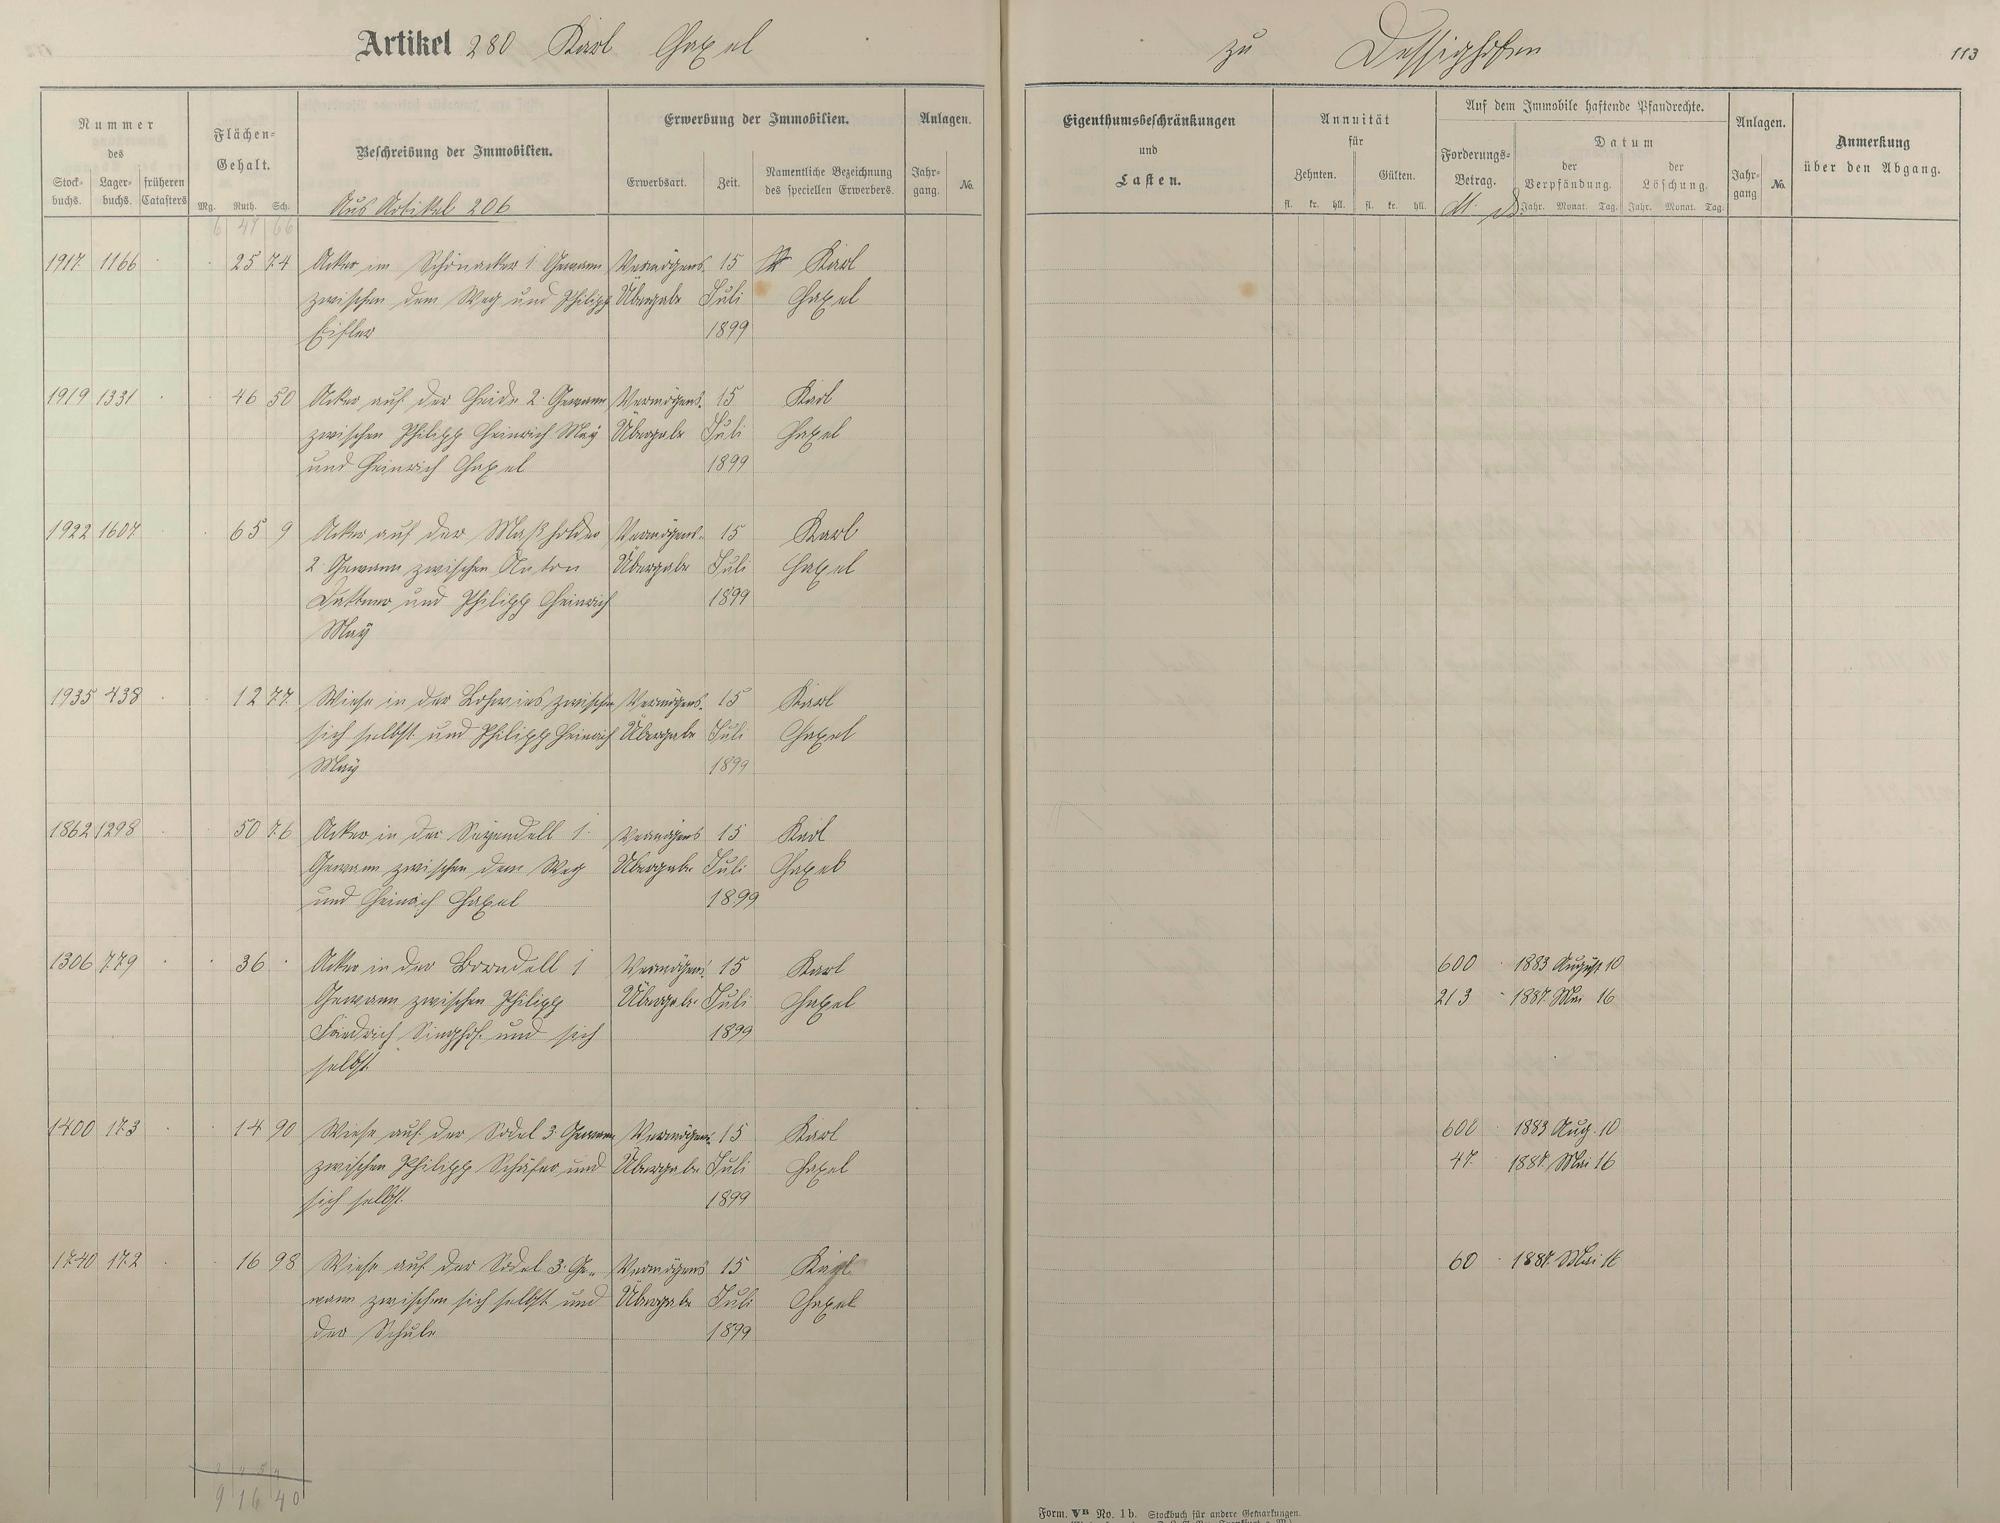 Artikel 280 Karl Hapel
zu Dessighofen 113
Nummer des
Stockbuchs. Lagerbuchs. früheren Catasters
Flächen-Gehalt.
Mg. Ruth. Sch.
Beschreibung der Immobilien.
Aus Artikel 206
Erwerbung der Immobilien.
Erwerbsart. Zeit. Namentliche Bezeichnung des speciellen Erwerbers.
Anlagen.
Jahrgang. No.
Eigenthumsbeschränkungen
und
Lasten.
Annuität
für
Zehnten. Gülten.
fl. kr. hll. fl. kr. hll.
Auf dem Immobile haftende Pfandrechte.
Forderungs-Betrag.
M.
Datum
der Verpfändung. der Löschung.
Jahr. Monat. Tag. Jahr. Monat. Tag.
Anlagen.
Jahrgang No.
Anmerkung
über den Abgang.
6 47 66
1917 1166 25 74 Acker im Schönacker 1 Gewann Vermögens- 15 Karl
zwischen dem Weg und Philipp Übergabe Juli Hapel
Eisler 1899
1919 1331 46 50 Acker auf der Heide 2 Gewann Vermögens- 15 Karl
zwischen Philipp Heinrich May Übergabe Juli Hapel
und Heinrich Hapel 1899
1922 1607 65 9 Acker auf der Maßholder Vermögens- 15 Karl
2 Gewann zwischen Anton Übergabe Juli Hapel
und Philipp Heinrich 1899
May
1935 438 12 77 Wiese in der Lohwies zwischen Vermögens- 15 Karl
sich selbst und Philipp Heinrich Übergabe Juli Hapel
May 1899
1862 1298 50 76 Acker in der 1. Vermögens 15 Karl
Gewann zwischen dem Weg Übergabe Juli Hapel
und Heinrich Hapel 1899
1306 779 36 Acker in der Borndell 1 Vermögens 15 Karl 600 1883 August 10
Gewann zwischen Philipp Übergabe Juli Hapel 213 1887 Mai 16
Friedrich Singhof und sich 1899
selbst
1400 173 14 90 Wiese auf der Sodel 3 Gewann Vermögens 15 Karl 600 1883 Aug. 10
zwischen Philipp Schäfer und Übergabe Juli Hapel 47 1887 Mai 16
sich selbst 1899
1740 172 16 98 Wiese auf der Sodel 3. Ge- Vermögens 15 Karl 60 1887 Mai 16
wann zwischen sich selbst und Übergabe Juli Hapel
der Schule 1899
9 16 40
Form. VB No. 1b. Stockbuch für andere Gemarkungen.